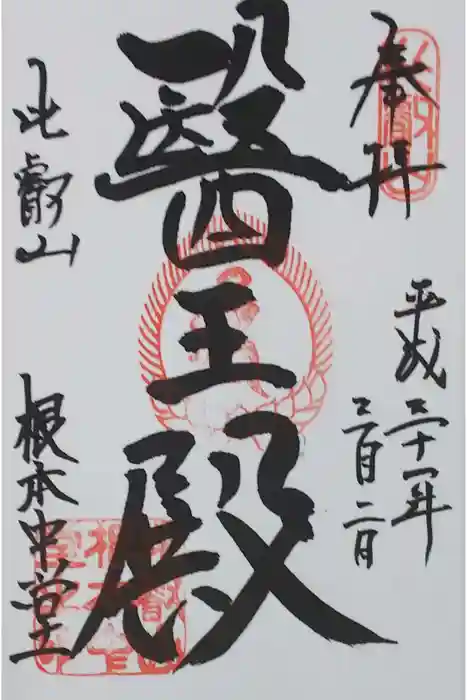 奉拝
平成二十一年
三月二日
醫王殿
比叡山
根本中堂